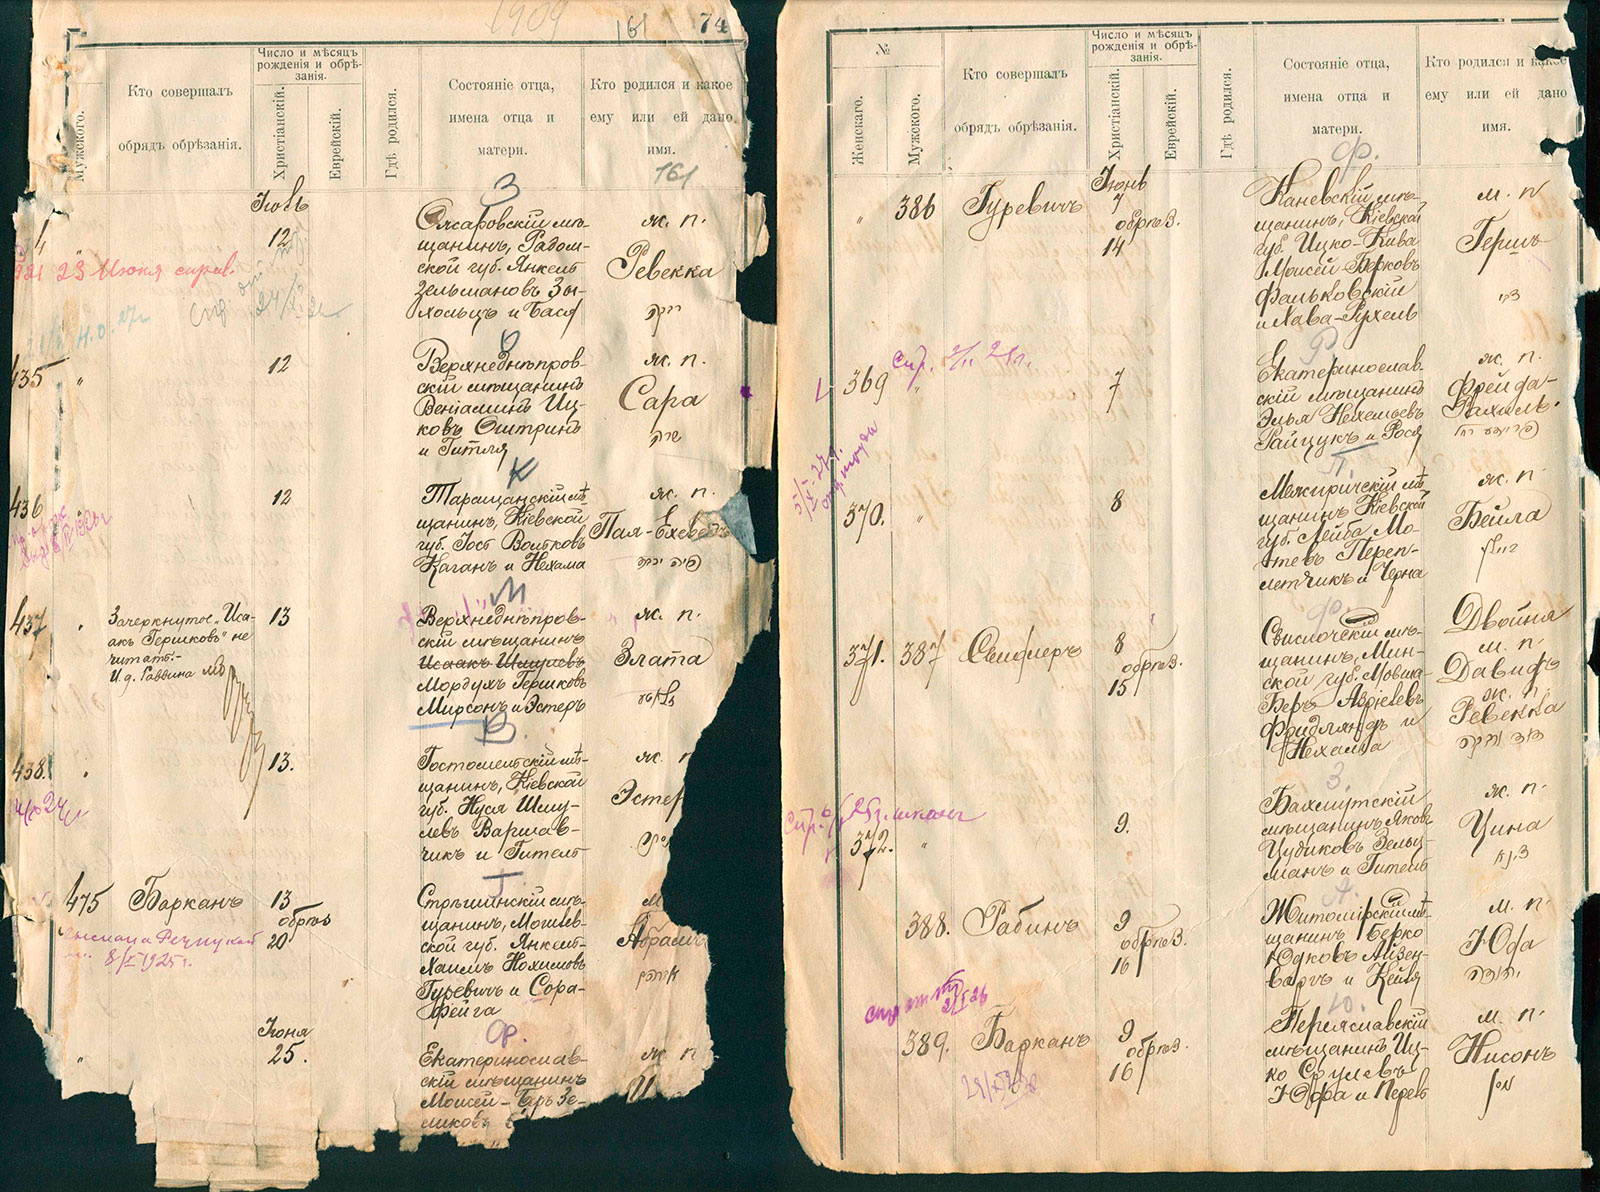 1909
161
74
Мужского.
Кто совершалъ
обрядъ обрѣзанія.
Число и мѣсяцъ
рожденія и обрѣ-
занія.
Христіанскій.
Еврейскій.
Гдѣ родился.
Состояніе отца,
имена отца и
матери.
Кто родился и какое
ему или ей дано
имя.
161
З
Іюль
12
щанинъ, Радом-
ской губ. Янкель
Зельмановъ Зы-
хольцъ и Бася
ж. п.
Ревекка
23 Июня справ.
О
435
"
12
Верхнеднѣпров-
скій мѣщанинъ
Веніаминъ Иц-
ковъ Оштринъ
и Гитля
ж. п.
Сара
שרה
К
436
12
Таращанскій мѣ-
щанинъ, Кіевской
губ. Іось Вольковъ
Каганъ и Нехама
ж. п.
М
437
"
Зачеркнутое „Иса-
акъ Гершковъ" не
читать:-
И. д. Раввина
13
Верхнеднѣпров-
скій мѣщанинъ
Исаакъ Шмулевъ
Мордухъ Гершковъ
Мирсонъ и Эстеръ
ж. п.
Злата
В.
438.
"
13.
Гостомельскій мѣ-
щанинъ, Кіевской
губ. Нуся Шму-
левъ Варшав-
чикъ и Гитель
ж. п
Эстер
Г.
475
Барканъ
13
обрѣз
20
8/X 1925 г.
щанинъ, Могилев-
ской губ. Янкель-
Хаимъ Нохимовъ
Гуревичъ и Сора-
Фейга
м
Абрамъ
Ф.
"
Іюня
25.
Екатеринослав-
скій мѣщанинъ
Моисей-Беръ Зе-
ликовъ
ж. п
№
Женскаго.
Мужского.
Кто совершалъ
обрядъ обрѣзанія.
Число и мѣсяцъ
рожденія и обрѣ-
занія.
Христіанскій.
Еврейскій.
Гдѣ родился.
Состояніе отца,
имена отца и
матери.
Кто родился и какое
ему или ей дано
имя.
Ф.
"
386
Гуревичъ
Іюнь
7
обрѣз.
14
Каневскій мѣ-
щанинъ, Кіевской
губ. Ицко-Кива
Моисей-Берковъ
Фальковскій
и Хава-Рухель
м. п
Гершъ
Ф
369
"
7
Екатеринослав-
скій мѣщанинъ
Элья Нехемьевъ
Райцукъ и Рося
ж. п.
Фрейда-
Рахиль.
П.
370.
"
8
Межиричскій мѣ-
щанинъ Кіевской
губ. Лейба Мо-
тевъ Переп-
летчикъ и Черна
ж. п.
Бейла
ביילא
Ф.
371.
387
8
обрѣз.
15
Свислочскій мѣ-
щанинъ, Мин-
ской губ. Мовша-
Беръ Авріелевъ
Фридляндъ и
Нехама
Двойня
м. п.
Давидъ
ж. п.
Ревекка
דוד ורבקה
З.
372.
"
9.
Бахмутскій
мѣщанинъ Яковъ
Цудиковъ Зельц-
манъ и Гитель
ж. п.
Цина
А.
388.
Рабинъ
9
обрѣз.
16
Житомірскій мѣ-
щанинъ Берко
Юдковъ Айзен-
варгъ и Кейля
м. п.
Юда
יהודה
Ю.
389.
Барканъ
9
обрѣз.
16
Переяславскій
мѣщанинъ Иц-
ко Срулевъ
Юффа и Перев
м. п.
Нисонъ